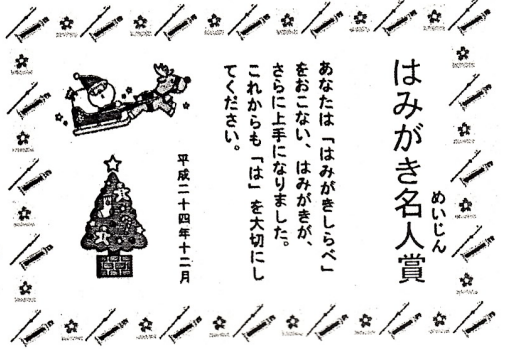 はみがき名人賞
めいじん
あなたは「はみがきしらべ」
をおこない、はみがきが、
さらに上手になりました。
これからも「は」を大切にし
てください。
平成二十四年十二月